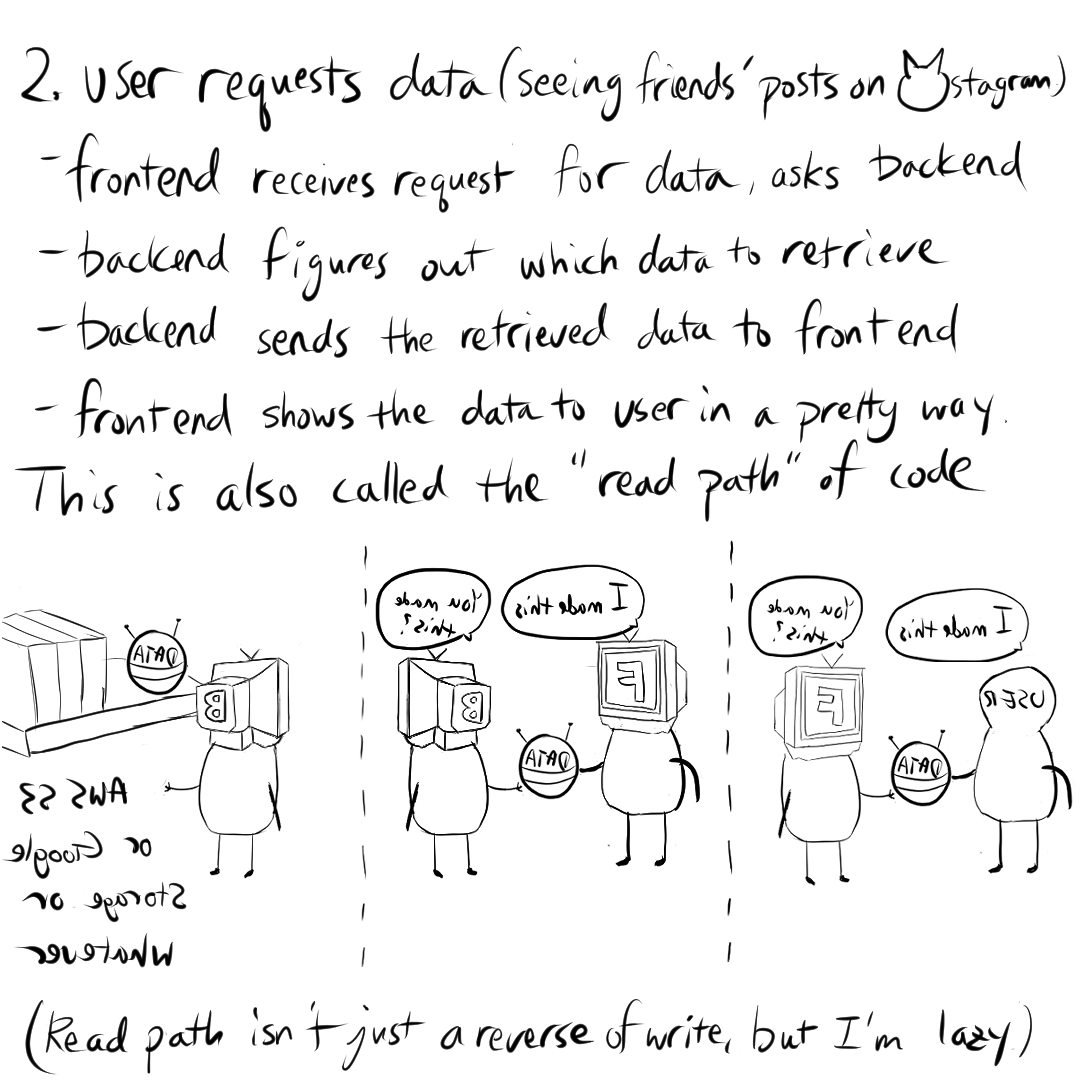 2. user requests data (seeing friends' posts on stagram)
- frontend receives request for data, asks backend
- backend figures out which data to retrieve
- backend sends the retrieved data to frontend
- frontend shows the data to user in a pretty way.
This is also called the "read path" of code
DATA
B
AWS S3
or Google
Storage or
Whatever
You made
this?
I made this
B
F
DATA
You made
this?
I made this
F
USER
DATA
(Read path isn't just a reverse of write, but I'm lazy)